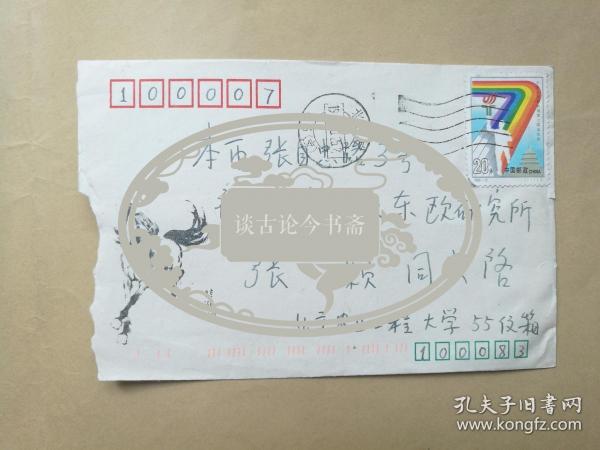 100007
本市张自忠路3号
东欧研究所
张 颖同志 启
北京农业工程大学55信箱
100083
20分
中国邮政 CHINA
谈古论今书斋
孔夫子旧书网
www.kongfz.com